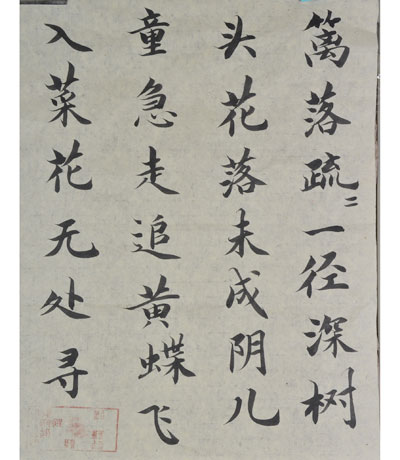 篱落疏二一径深树
头花落未成阴儿
童急走追黄蝶飞
入菜花无处寻